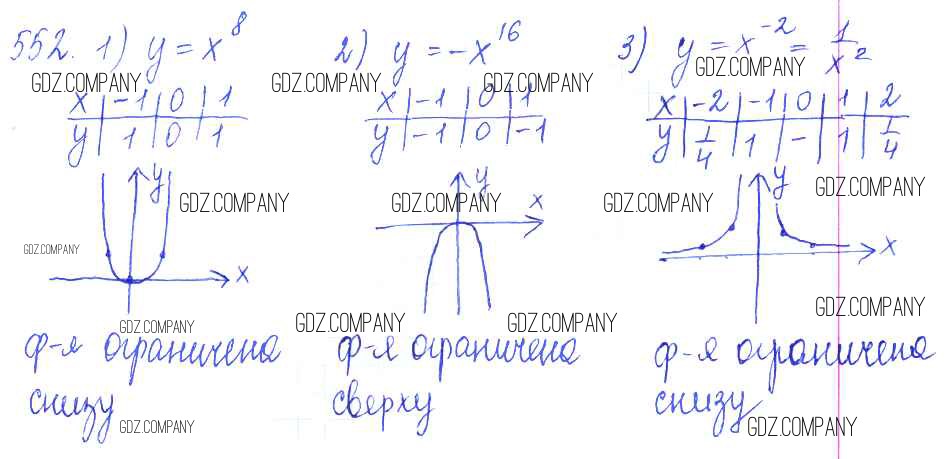 552. 1) y = x^8
GDZ.COMPANY
x | -1 | 0 | 1
y | 1 | 0 | 1
y
GDZ.COMPANY
GDZ.COMPANY
x
GDZ.COMPANY
ф-я ограничена
снизу
GDZ.COMPANY
2) y = -x^16
GDZ.COMPANY
x | -1 | 0 | 1
y | -1 | 0 | -1
y
x
GDZ.COMPANY
GDZ.COMPANY
GDZ.COMPANY
ф-я ограничена
сверху
3) y = x^-2 = 1/x^2
GDZ.COMPANY
x | -2 | -1 | 0 | 1 | 2
y | 1/4 | 1 | - | 1 | 1/4
y
GDZ.COMPANY
GDZ.COMPANY
x
GDZ.COMPANY
ф-я ограничена
снизу
GDZ.COMPANY